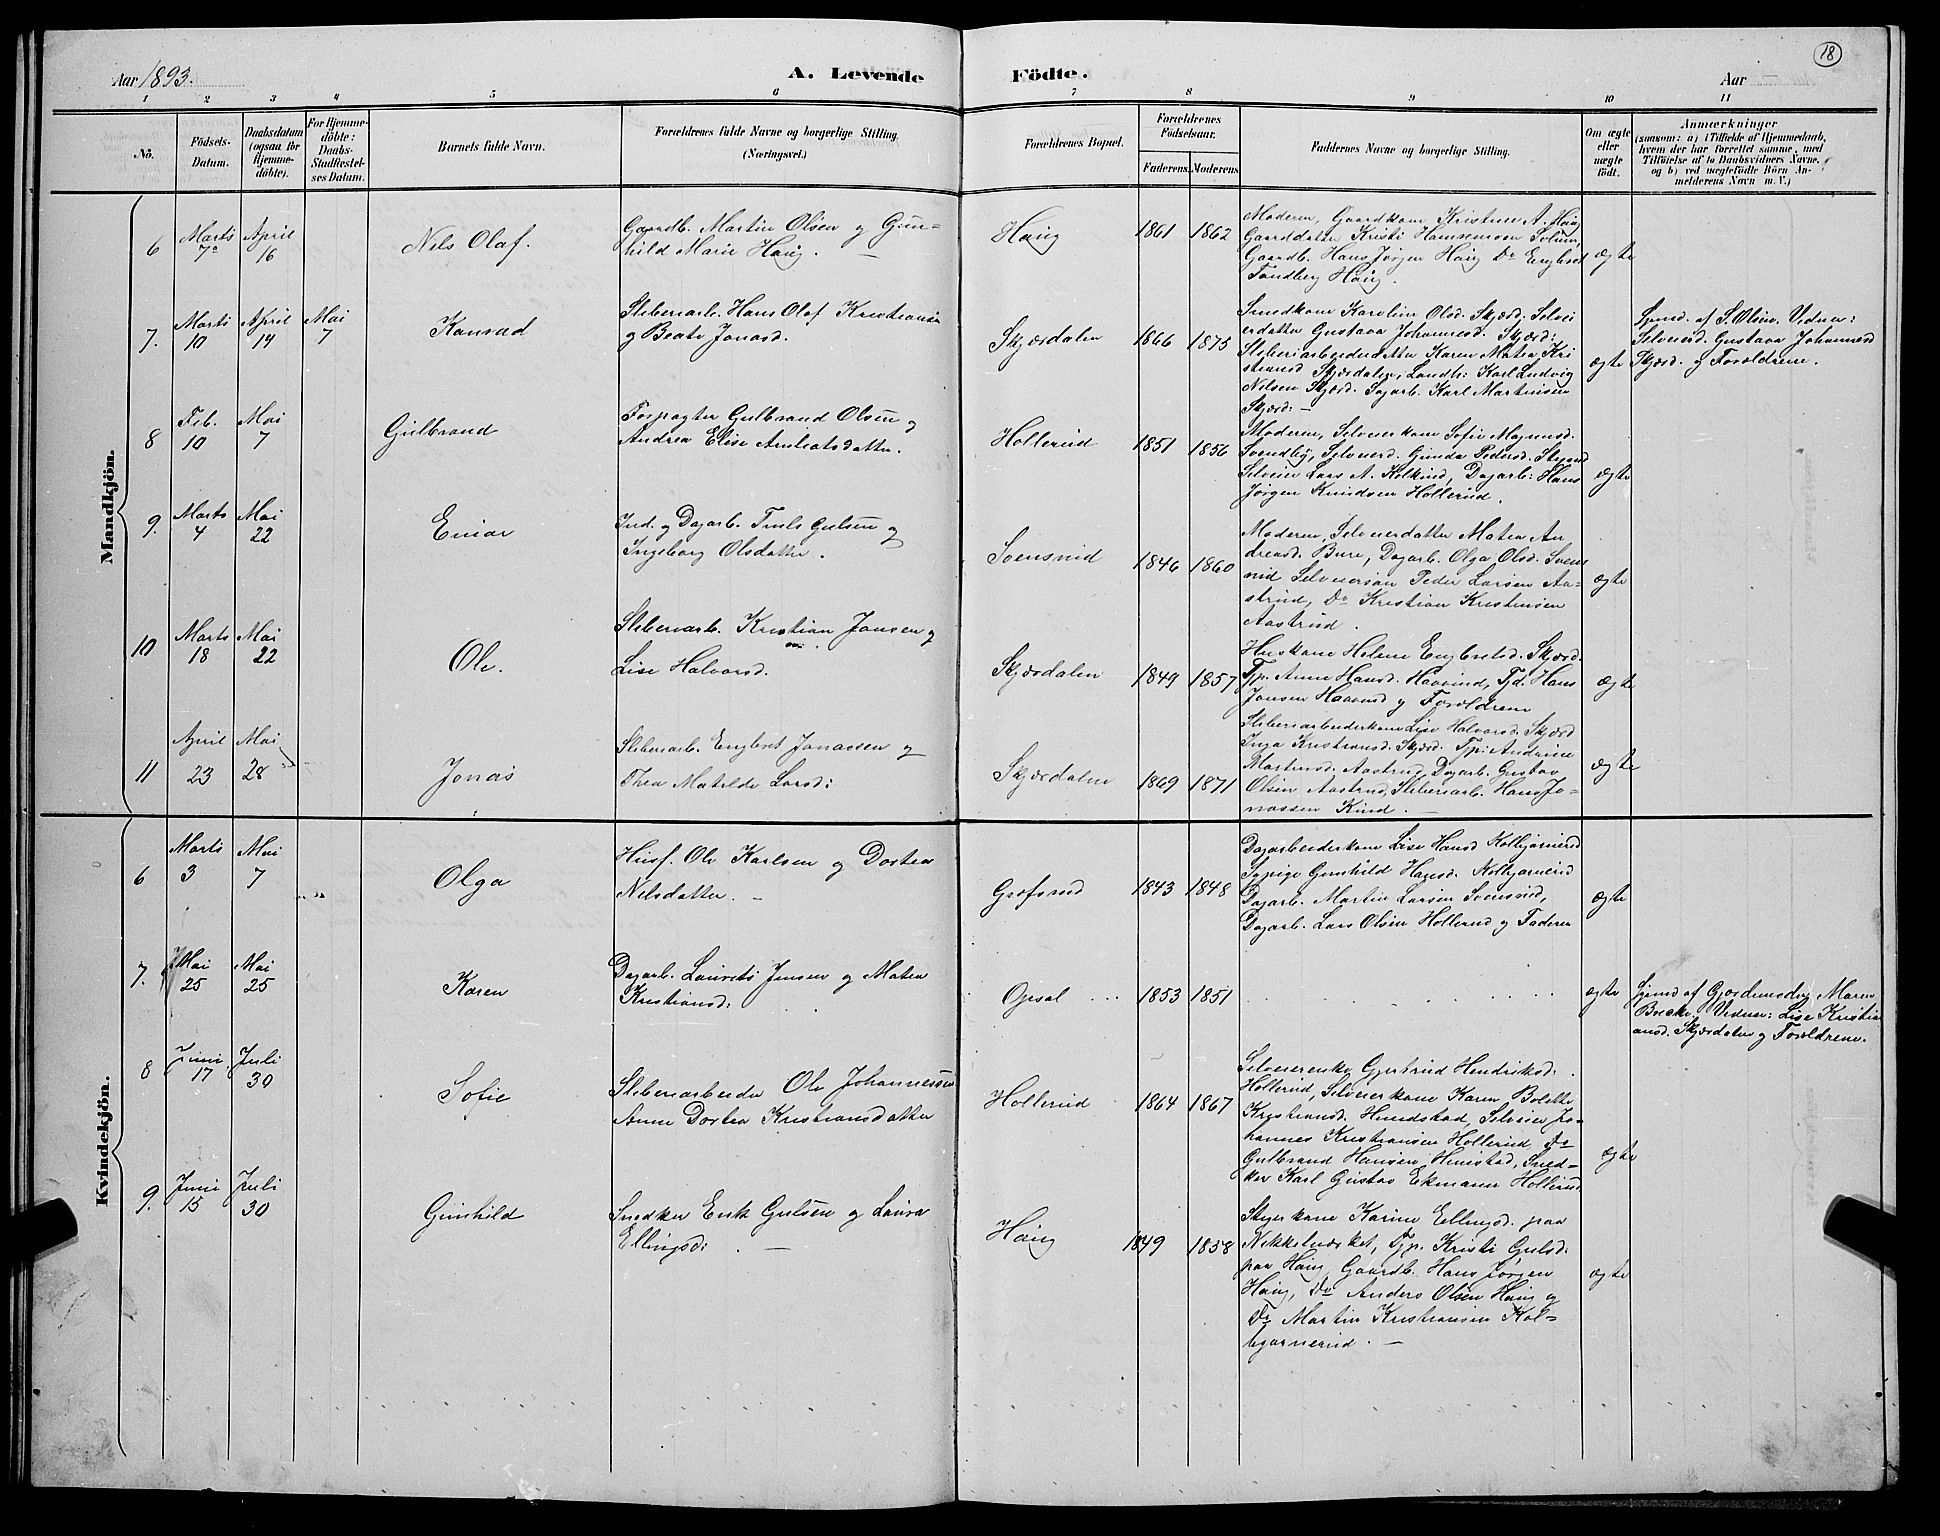 18
Aar 1893.
A. Levende Födte.
Aar
1 2 3 4 5 6 7 8 9 10 11
No.
Födsels-
Datum.
Daabsdatum
(ogsaa for
Hjemme-
döbte).
For Hjemme-
döbte:
Daabs-
Stadfæstel-
ses Datum.
Barnets fulde Navn.
Forældrenes fulde Navne og borgerlige Stilling.
(Næringsvei.)
Forældrenes Bopæl.
Forældrenes
Födselsaar.
Faderens. Moderens.
Faddernes Navne og borgerlige Stilling.
Om ægte
eller
uægte
födt.
Anmærkninger
(saasom: a) i Tilfælde af Hjemmedaab,
hvem der har forrettet samme, med
Tilföielse af to Daabsvidners Navne,
og b) ved uægtefödte Börn An-
melderens Navn m. V.)
Mandkjön.
6
Marts
7de
April
16
Nils Olaf.
Gaardb. Martin Olsen og Gun-
hild Marie Haug.
Haug
1861 1862
Moderen, Gaardkone Kristine A. Haug
Gaarddatter Kristi Hansemoen Solum,
Gaardb. Hans Jørgen Haug Do Engebret
Tandberg Haug.
ægte
7.
Marts
10
April
14
Mai
7
Konrad
Sliberiarb. Hans Olaf Kristiansen
og Beate Jonasd.
Skjærdalen
1866 1875
Smedkone Karoline Olsd. Skjærd. Selvei
erdatter Gustava Johannesd. Skjærd:
Sliberiarbeiderdatter Karen Matea Kri
stiansd Skjærdalen, Landh: Karl Ludvig
Nilsen Skjærd. Sagarb. Karl Martinsen
Skjærd:
ægte
Hjemd. af S. Olsen. Vidner:
Selveierd. Gustava Johannesd
Skjærd. og Forældrene.
8
Feb.
10
Mai
7
Gulbrand
Forpagter Gulbrand Olsen og
Andrea Elise Amundsdatter.
Hollerud
1851 1856
Moderen, Selveierkone Sofie Magnusd.
Svendby, Selveierd. Gunda Pedersd.
Selveier Lars A. Kolkind, Dagarb: Hans
Jørgen Knudsen Hollerud.
ægte
9.
Marts
4
Mai
22
Einar
Ind. og Dagarb. Truls Gulsen og
Ingeborg Olsdatter.
Svensrud
1846 1860
Moderen, Selveierdatter Matea An
dreasd. Bure, Dagarb. Olga Olsd. Svens
rud Selveiersøn Peder Larsen Aa-
strud, Do Kristian Kristensen
Aastrud.
ægte
10
Marts
18
Mai
22
Ole.
Sliberiarb. Kristian Jonsen og
Lise Halvorsd.
Skjærdalen
1849 1857
Huskone Helene Engebretsd. Skjærd.
Tp. Anne Hansd. Haavind, Tjd. Hans
Jonsen Haavind og Forældrene
ægte
11
April
23
Mai
28
Jonas
Sliberiarb. Engebret Jonassen og
Thea Matilde Larsd:
Skjærdalen
1869 1871
Sliberiarbeiderkone Lise Halvorsd. Skjærd
Inga Kristiansd. Skjærd. Tjp: Andrine
Martinsd. Aastrud, Dagarb. Gustav
Olsen Aastrud, Sliberiarb. Hans Jo-
nassen Kind.
ægte
Kvindekjön.
6
Marts
3
Mai
7
Olga
Husf. Ole Karlsen og Dortea
Nilsdatter.
Grøfsrud
1843 1848
Dagarbeiderkone Lise Hansd Kolbjørnrud
Sypige Gunhild Hansd. Kolbjørnrud
Dagarb. Martin Larsen Svensrud,
Dagarb. Lars Olsen Hollerud og Faderen
ægte
7.
Mai
25
Mai
25
Karen
Dagarb. Laurits Jensen og Matea
Kristiansd:
Opsal
1853 1851
ægte
Hjemd af Gjordemoder Maren
Brække. Vidner: Lise Kristi
ansd. Skjærdalen og Forældrene.
8
Juni
17
Juli
30
Sofie
Sliberiarbeider Ole Johannessen
Anne Dortea Kristiansdatter
Hollerud
1864 1867
Selveierenke Gjertrud Hendriksd:
Hollerud, Selveierkone Karen Bolette
Kristiansd. Hundstad, Selveier Jo-
hannes Kristiansen Hollerud, Do
Gulbrand Hansen Hunstad, Sned-
ker Karl Gustav Ekmann Hollerud
ægte
9.
Juni
15
Juli
30
Gunhild
Snedker Erik Gulsen og Laura
Ellingsd:
Haug
1849 1858
Styerkone Karine Ellingsd. paa
Nikkelværket, Tjp. Kristi Gulsd:
paa Haug, Gaardb. Hans Jørgen
Haug, Do Anders Olsen Haug og
Do Martin Kristiansen Kol-
bjørnerud.
ægte